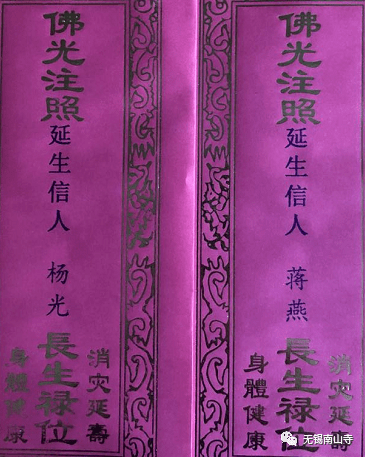 佛光注照
延生信人 杨光
長生禄位
消灾延壽
身體健康
佛光注照
延生信人 蒋燕
長生禄位
消灾延壽
身體健康
无锡南山寺